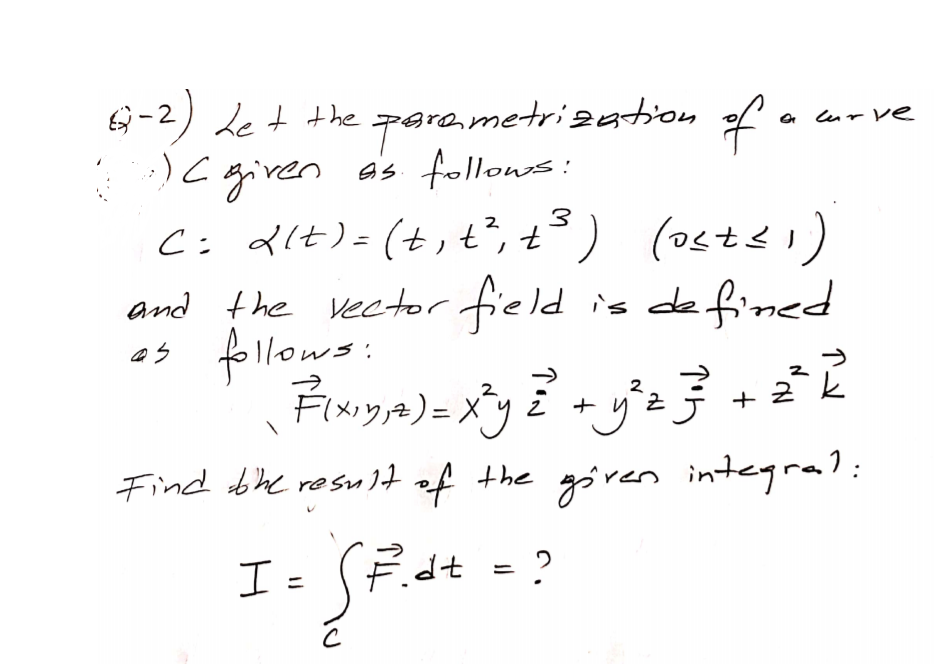 Q-2) Let the parametrization of a curve
C given as follows:
C: α(t) = (t, t², t³) (0≤t≤1)
and the vector field is defined
as follows:
F⃗(x,y,z) = x²y i⃗ + y²z j⃗ + z² k⃗
Find the result of the given integral:
I = ∫ F⃗.dt = ?
C